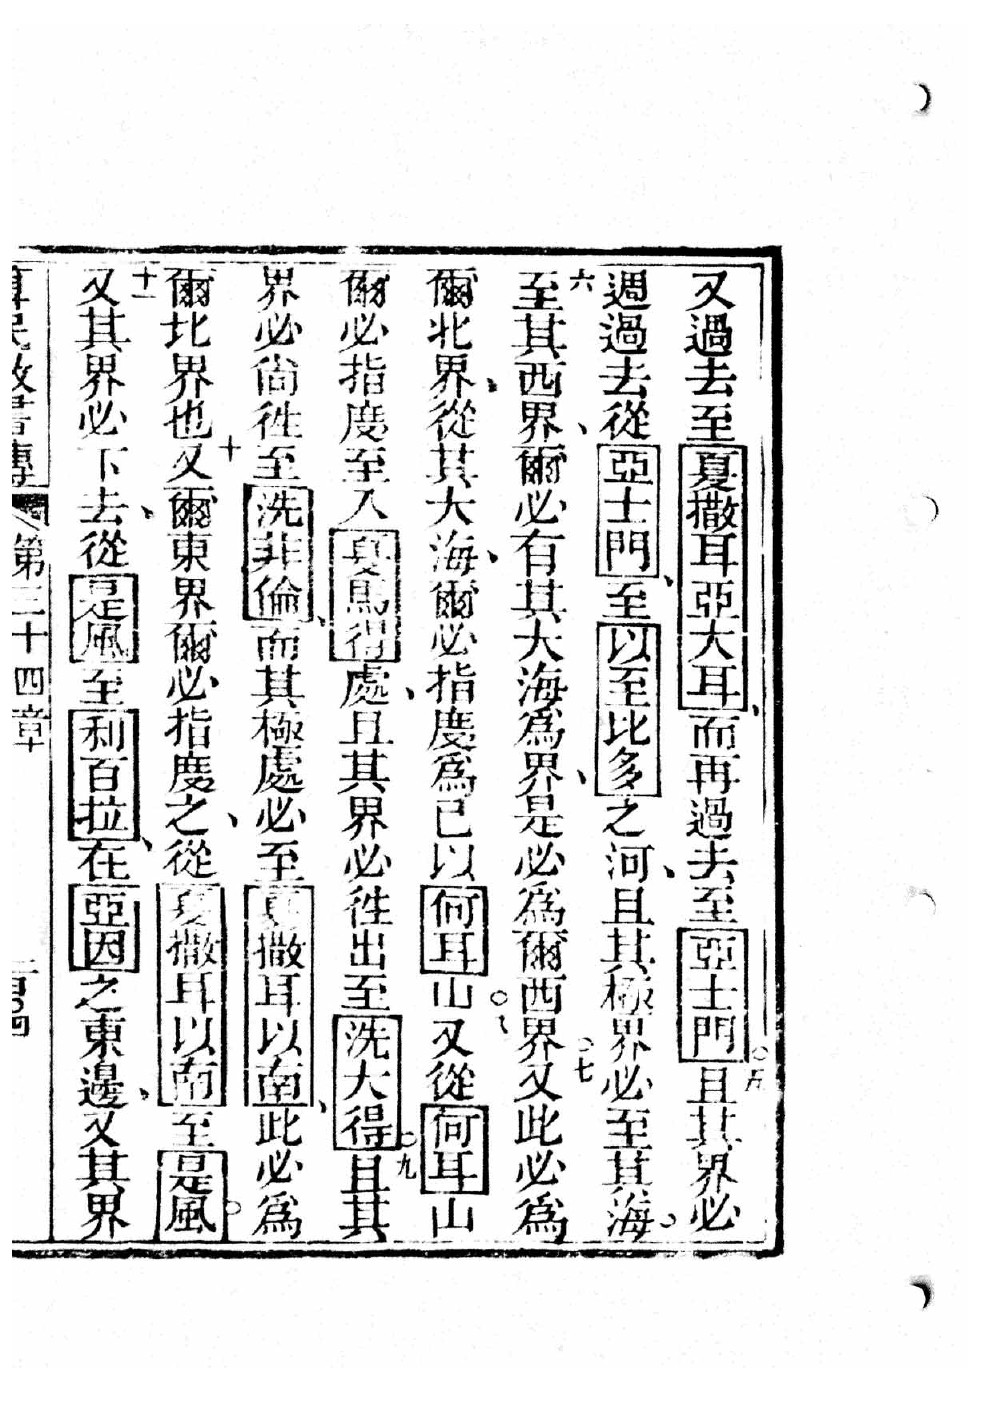 又過去至夏撒耳亞大耳、而再過去至亞士門。五且其界必
週過去從亞士門、至以至比多之河、且其極界必至其海。
六至其西界、爾必有其大海為界、是必為爾西界。七又此必為
爾北界、從其大海、爾必指度為已以何耳山。八又從何耳山
爾必指度至入夏馬得處、且其界必徃出至洗大得。九且其
界必尙徃至洗非倫、而其極處必至夏撒耳以南、此必為
爾北界也十又爾東界爾必指度之、從夏撒耳以南至是風。
十一又其界必下去、從是風至利百拉、在亞因之東邊、又其界
算民數書傳 第三十四章